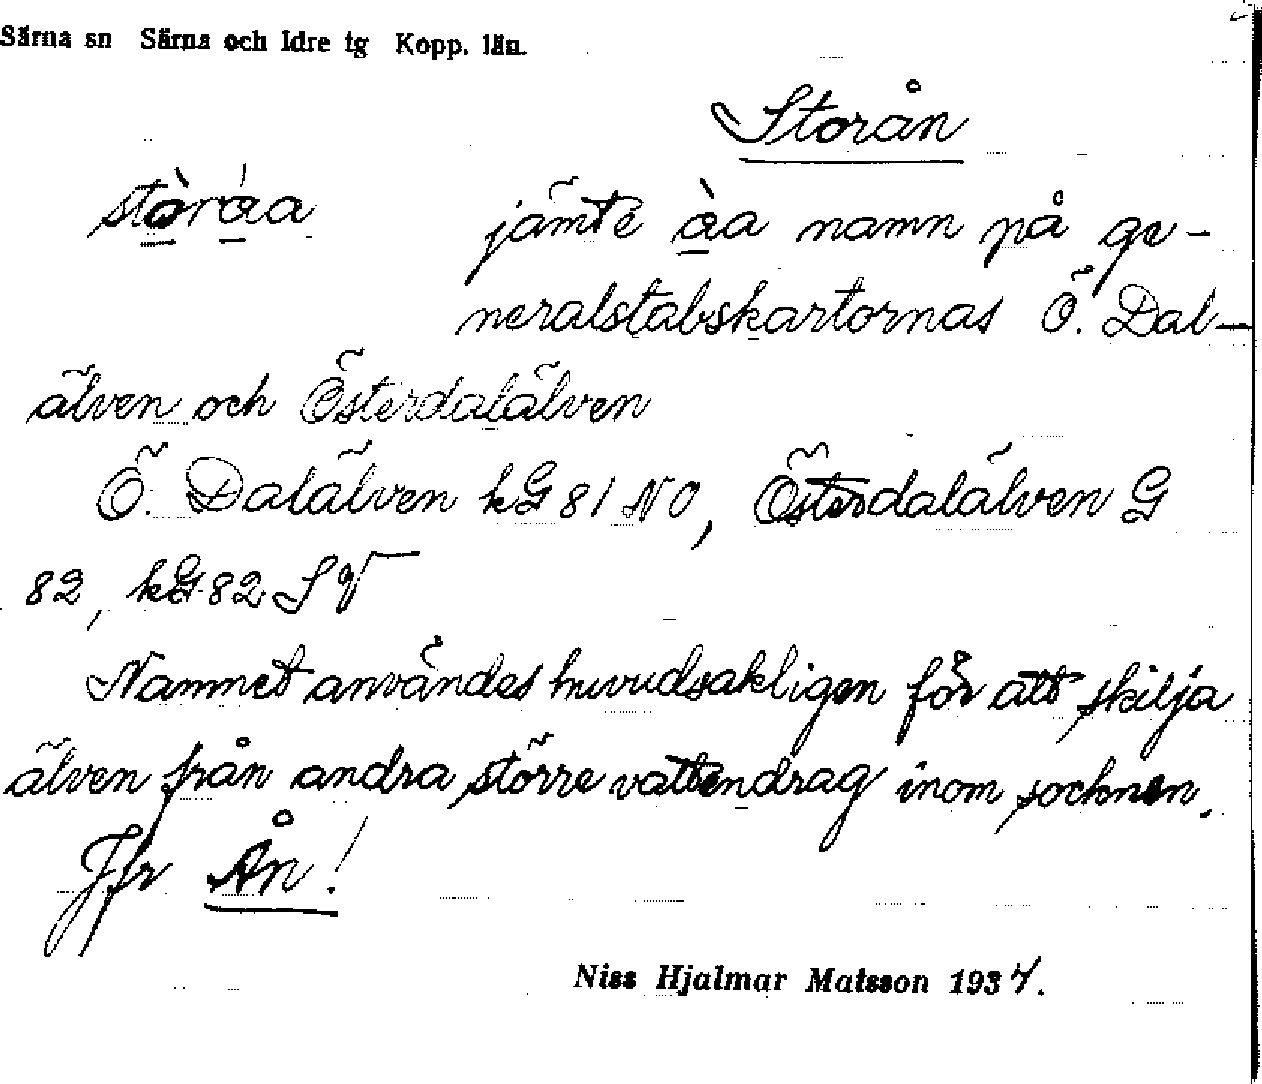 Särna sn Särna och Idre tg Kopp. län.
Storån
stòráa jämte àa namn på ge-
neralstabskartornas Ö. Dal-
älven och Österdalälven
Ö. Dalälven kG 81 NO, Österdalälven G
82, kG 82 SV
Namnet användes huvudsakligen för att skilja
älven från andra större vattendrag inom socknen.
Jfr Ån!
Niss Hjalmar Matsson 1934.